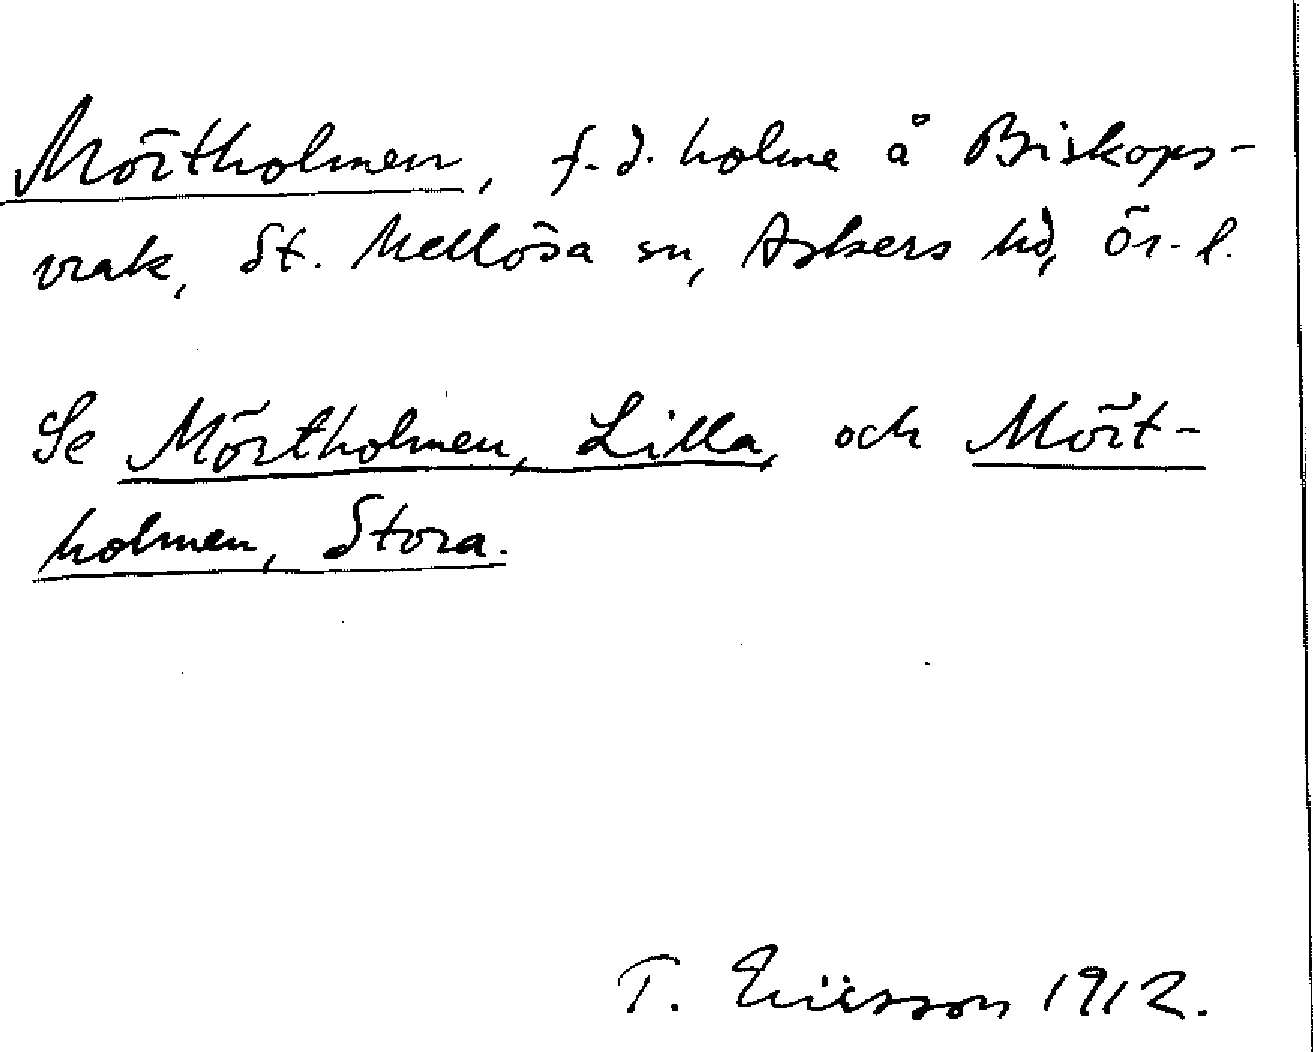 Mörtholmen, f.d. holme å Biskops-
vrak, St. Mellösa sn, Askers hd, Ör. l.
Se Mörtholmen, Lilla, och Mört-
holmen, Stora.
T. Ericsson 1912.